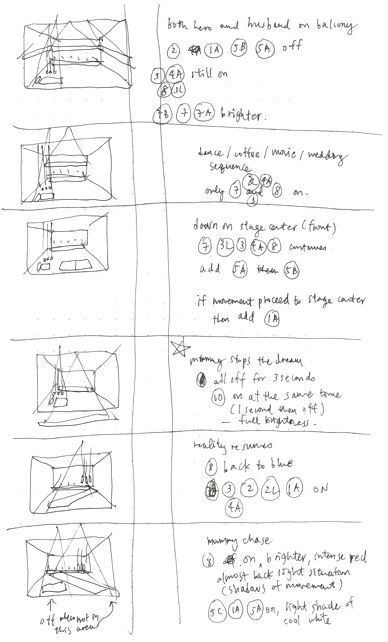 both hero and husband on balcony
2 1A 5B 5A off
3 4A still on
8 3L
7B 7 7A brighter.
dance / coffee / movie / wedding
sequence
3L 4A
only 7 and 8 on.
3
down on stage center (front)
7 3L 3 4A 8 continues
add 5A then 5B
if movement proceed to stage center
then add 1A
mummy stops the dream
all off for 3 seconds
10 on at the same time
(1 second then off)
– full brightness.
reality resumes
8 back to blue
3 2 2L 1A ON
4A
mummy chase
8 on, brighter, intense red
almost back light situation
(shadows of movement)
5C 1A 5A on, light shade of
cool white
off when not in
this area